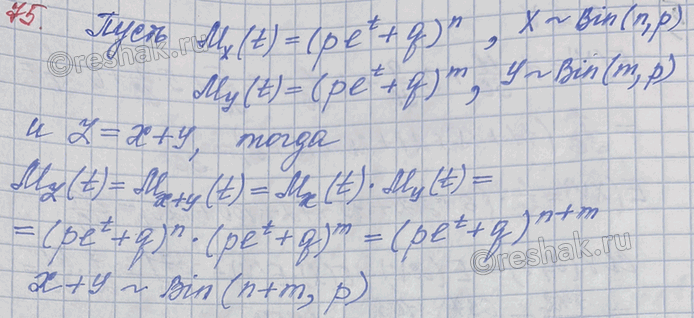 75. Пусть Mx(t) = (pe^t + q)^n , X ~ Bin(n,p)
My(t) = (pe^t + q)^m , Y ~ Bin(m,p)
и Z = x+y, тогда
Mz(t) = Mx+y(t) = Mx(t) · My(t) =
= (pe^t + q)^n · (pe^t + q)^m = (pe^t + q)^n+m
x+y ~ Bin(n+m, p)
©reshak.ru